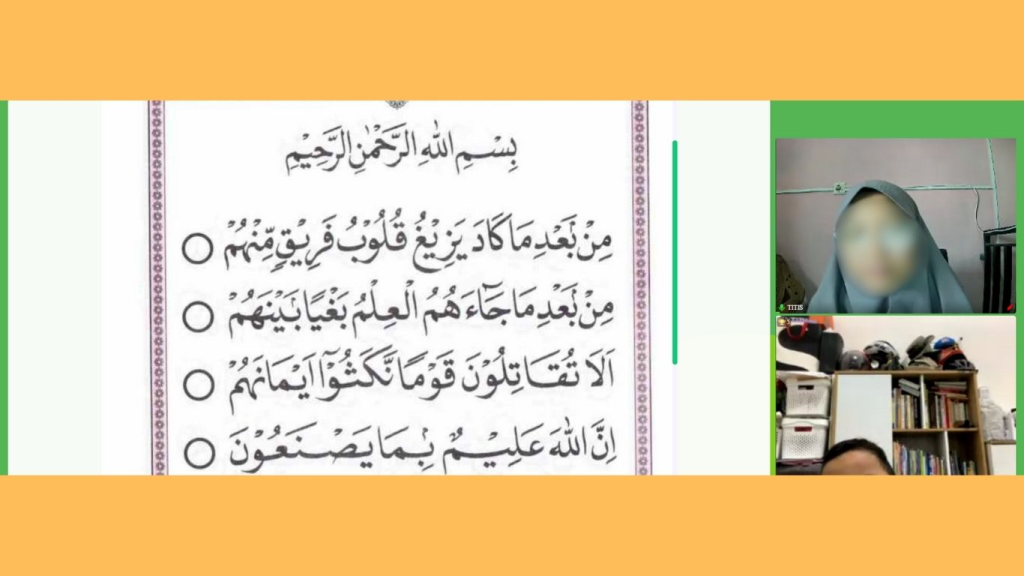 بِسْمِ اللهِ الرَّحْمٰنِ الرَّحِيْمِ
مِنْ بَعْدِ مَا كَادَ يَزِيْغُ قُلُوْبُ فَرِيْقٍ مِّنْهُمْ
مِنْ بَعْدِ مَا جَاءَهُمُ الْعِلْمُ بَغْيًا بَيْنَهُمْ
اَلَا تُقَاتِلُوْنَ قَوْمًا نَّكَثُوْٓا اَيْمَانَهُمْ
اِنَّ اللهَ عَلِيْمٌ بِمَا يَصْنَعُوْنَ
TITIS